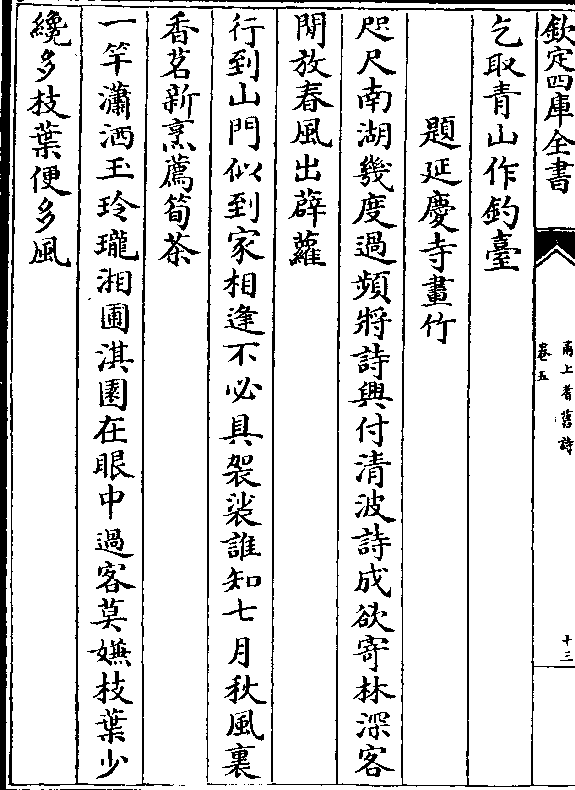 欽定四庫全書
甬上耆舊詩
卷五
十三
乞取青山作釣臺
題延慶寺畫竹
咫尺南湖幾度過頻將詩興付清波詩成欲寄林深客
閒放春風出薜蘿
行到山門似到家相逢不必具袈裟誰知七月秋風裏
香茗新烹薦筍茶
一竿瀟洒玉玲瓏湘圃淇園在眼中過客莫嫌枝葉少
纔多枝葉便多風